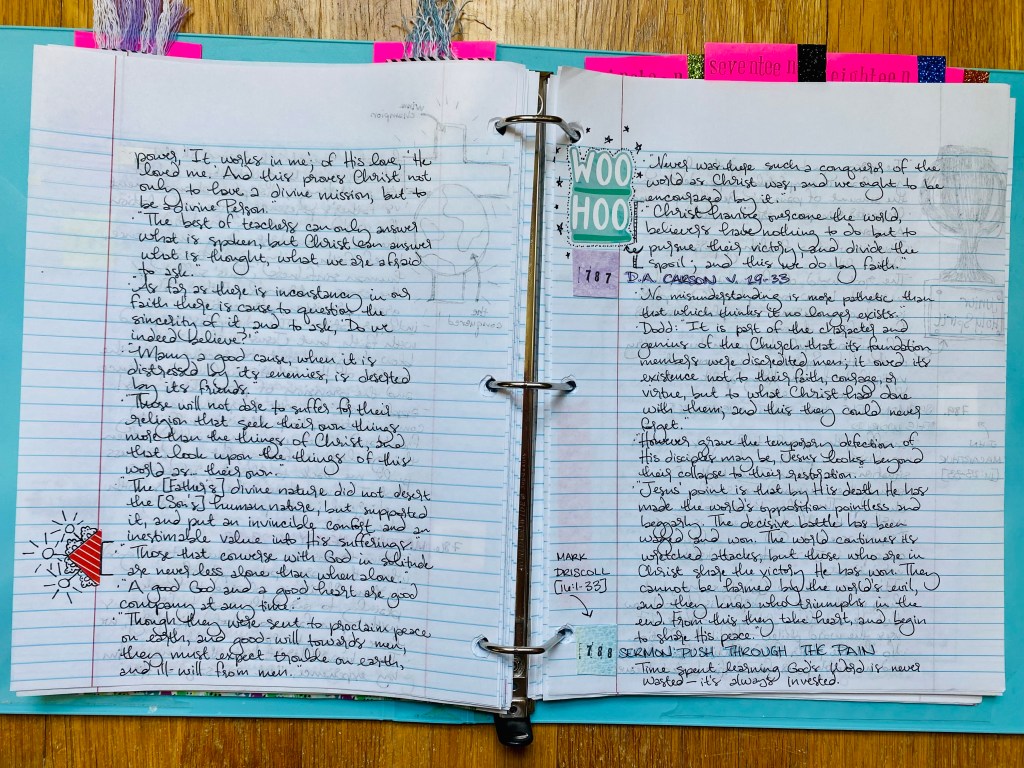 seventeen
eighteen
power, 'It works in me'; of His love, 'He
loved me.' And this proves Christ not
only to have a divine mission, but to
be a divine Person."
· "The best of teachers can only answer
what is spoken, but Christ can answer
what is thought, what we are afraid
to ask."
· "As far as there is inconstancy in our
faith there is cause to question the
sincerity of it, and to ask, 'Do we
indeed believe?'"
· "Many a good cause, when it is
distressed by its enemies, is deserted
by its friends."
· "Those will not dare to suffer for their
religion that seek their own things
more than the things of Christ, and
that look upon the things of this
world as their own."
· "The [Father's] divine nature did not desert
the [Son's] human nature, but supported
it, and put an invincible comfort and an
inestimable value into His sufferings."
· "Those that converse with God in solitude
are never less alone than when alone."
· "A good God and a good heart are good
company at any time."
· "Though they were sent to proclaim peace
on earth, and good-will towards men,
they must expect trouble on earth,
and ill-will from men."
WOO
HOO
· "Never was there such a conqueror of the
world as Christ was, and we ought to be
encouraged by it."
· "Christ having overcome the world,
believers have nothing to do but to
pursue their victory, and divide the
spoil; and this we do by faith."
787
D.A. CARSON V. 29-33
· "No misunderstanding is more pathetic than
that which thinks it no longer exists."
· Dodd: "It is part of the character and
genius of the Church that its foundation
members were discredited men; it owed its
existence not to their faith, courage, or
virtue, but to what Christ had done
with them; and this they could never
forget."
· "However grave the temporary defection of
His disciples may be, Jesus looks beyond
their collapse to their restoration."
· "Jesus' point is that by His death He has
made the world's opposition pointless and
beggarly. The decisive battle has been
waged and won. The world continues its
wretched attacks, but those who are in
Christ share the victory He has won. They
cannot be harmed by the world's evil,
and they know who triumphs in the
end. From this they take heart, and begin
to share His peace."
MARK
DRISCOLL
[16:1-33]
788 SERMON: PUSH THROUGH THE PAIN
· Time spent learning God's Word is never
wasted – it's always invested.